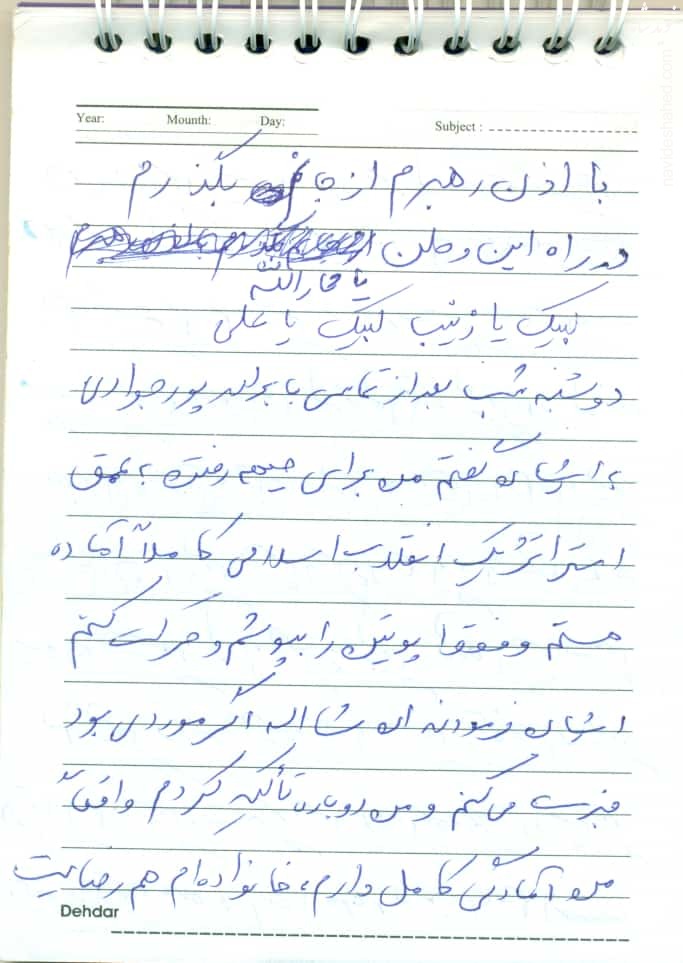 Year: Mounth: Day: Subject :
با اذن رهبرم از جانم بگذرم
در راه این وطن
یا ثارالله
لبیک یا زینب لبیک یا علی
دوشنبه شب بعد از تماس با برادر پورجوادی
به ایشان گفتم من برای جبهه رفتن به عمق
استراتژیک انقلاب اسلامی کاملاً آماده
هستم و فقط پوتین را بپوشم و حرکت کنم
ایشان فرمودند ان شااله اگر موردی بود
خبرت می‌کنم و من دوباره تأکید کردم واقعاً
من آمادگی کامل دارم، خانواده‌ام هم رضایت
Dehdar
navideshahed.com